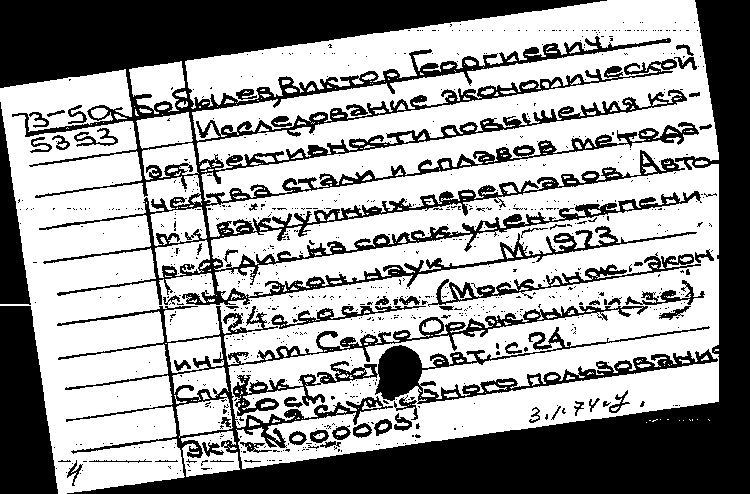 73-50к Бобылев, Виктор Георгиевич.
5353
Исследование экономической
эффективности повышения ка-
чества стали и сплавов метода-
ми вакуумных переплавов. Авто-
реф. дис. на соиск. учен. степени
канд. экон. наук. М., 1973.
24 с. со схем. (Моск. инж.-экон.
ин-т им. Серго Орджоникидзе).
Список работ авт.: с. 24.
Для служебного пользования
Экз. N000005.
3.1.74.
4